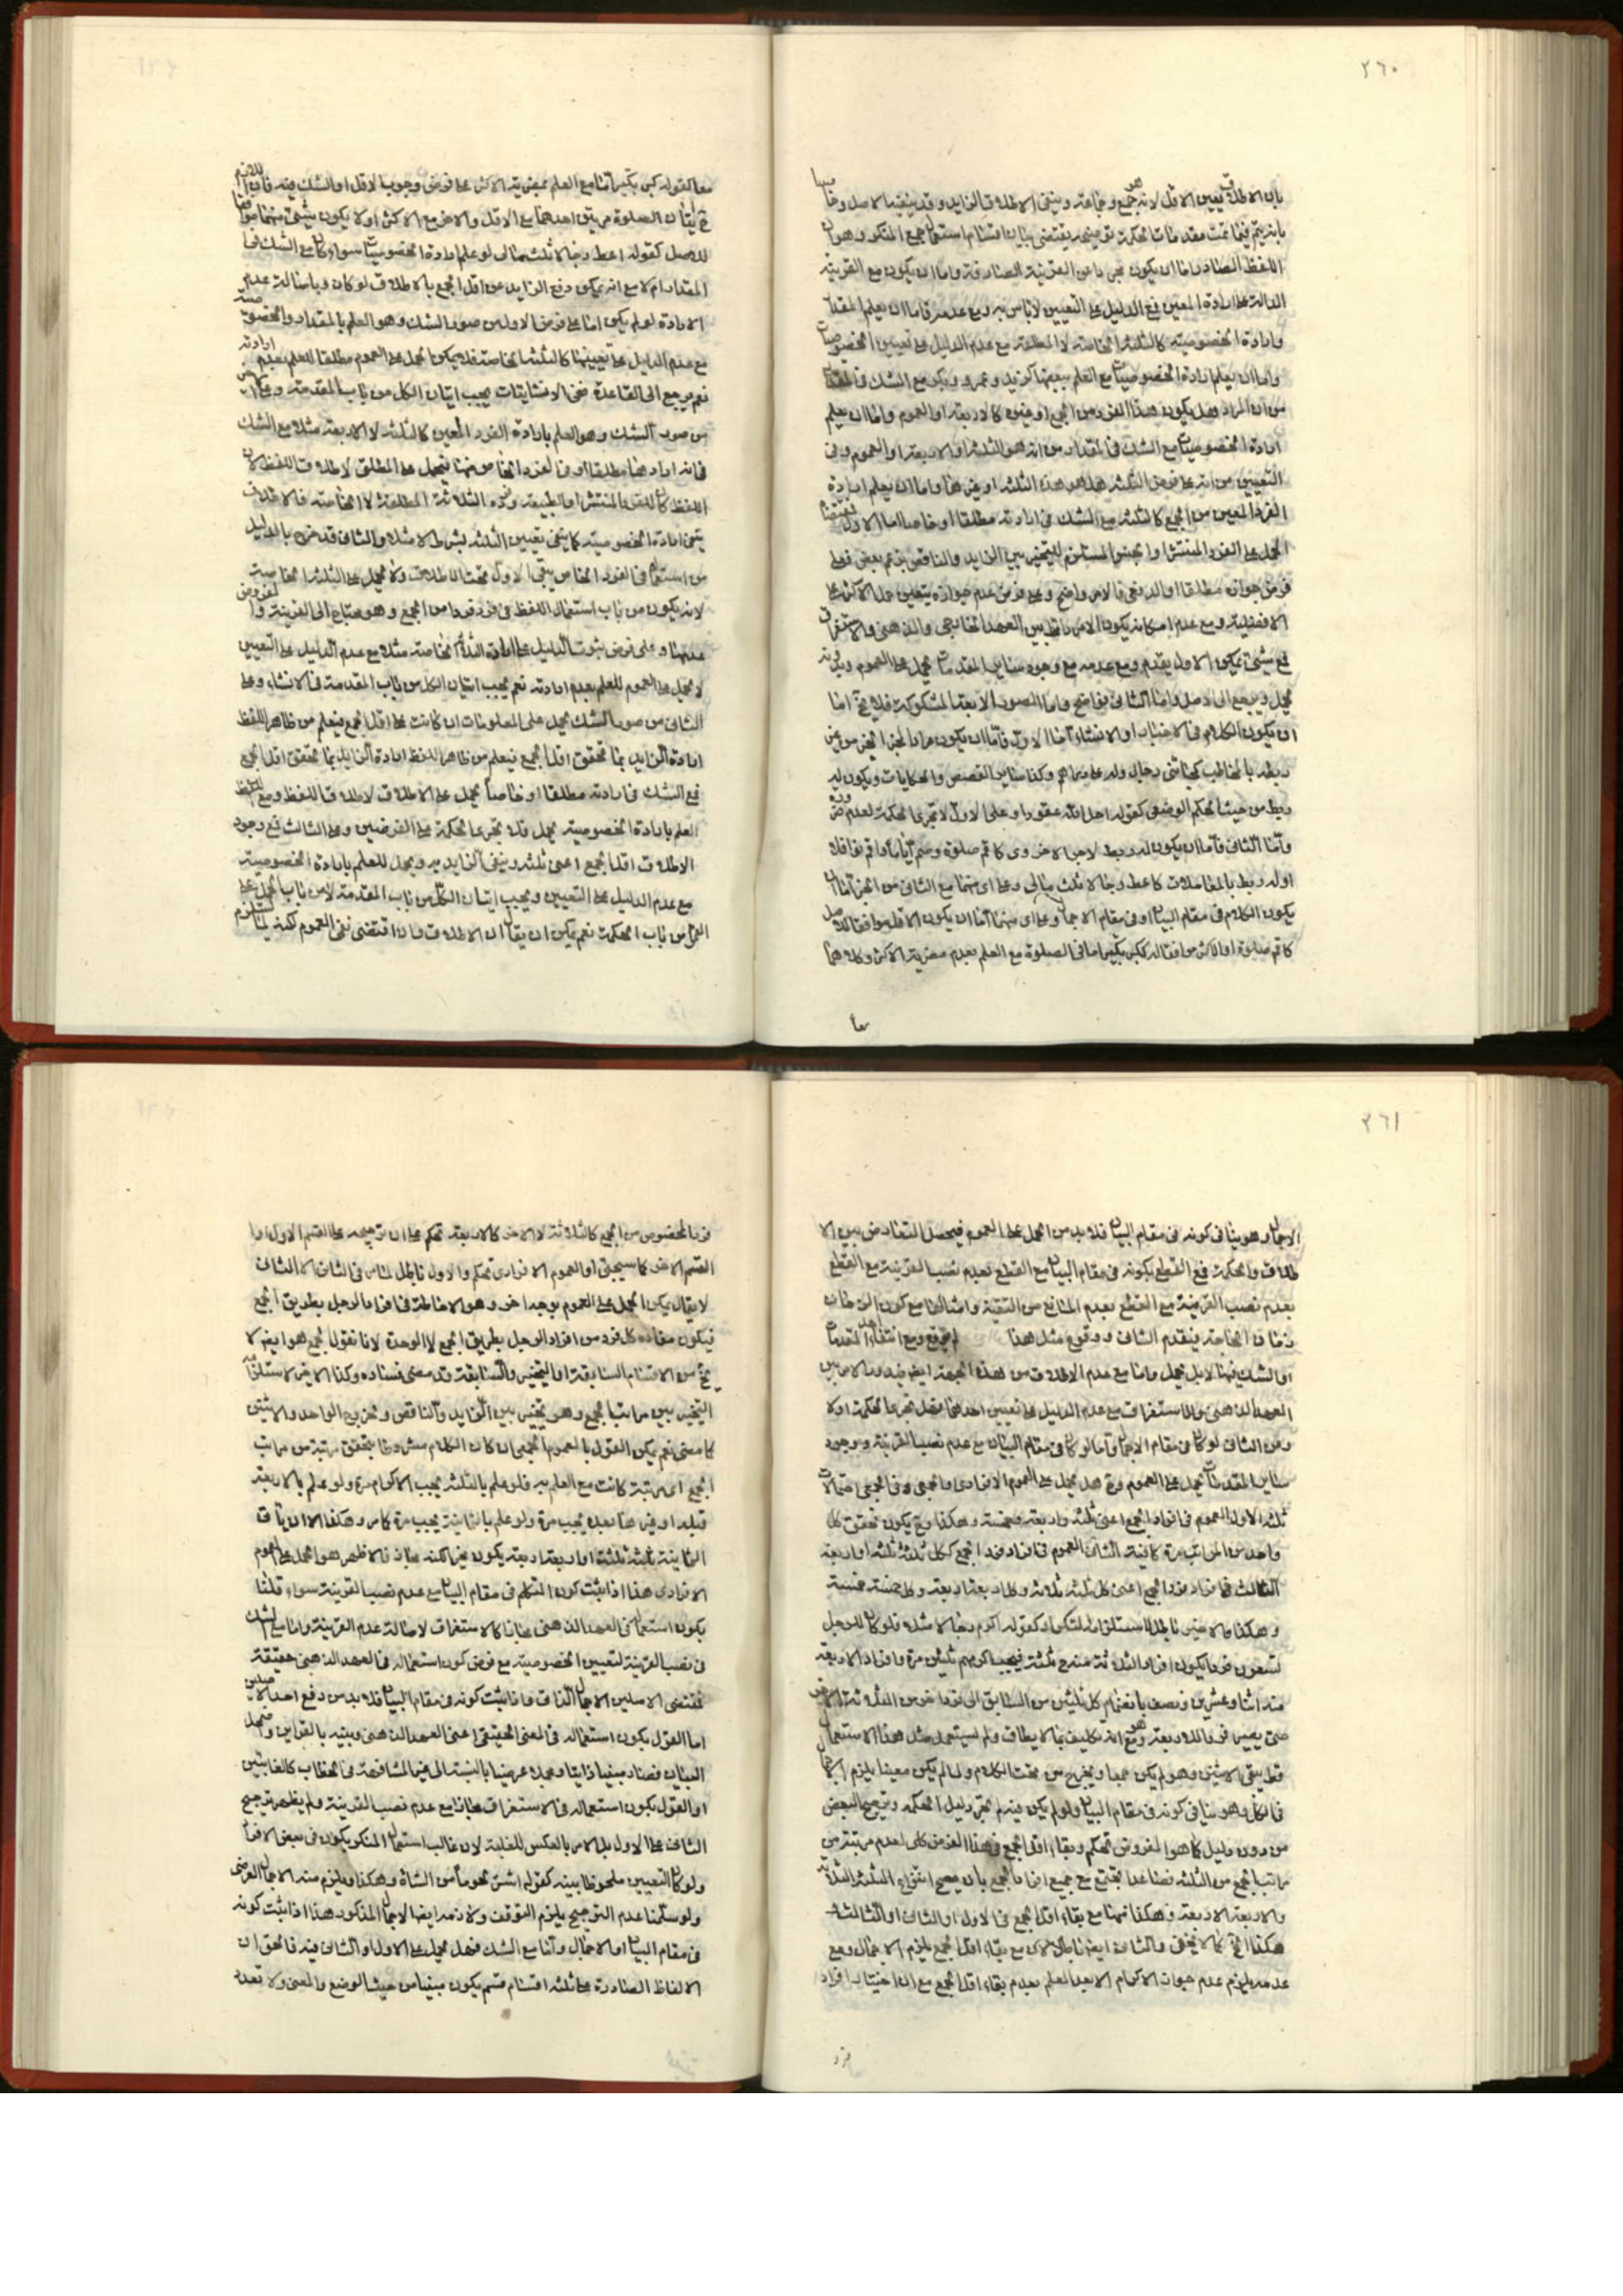 ٢٦٠
بان الاطلاق يعين الاقل لانه جمع وجماعة وينفى الاطلاق الزايد وقد ينفيه الاصل
بانه يتم فيما تمت مقدمات الحكمة توضيحه يقتضى بيان اقسام استعمال جمع المنكر وهو ان
اللفظ الصادر اما ان يكون مجردا عن القرينة الصارفة واما ان يكون مع القرينة
الدالة على ارادة المعين فمع الدليل على التعيين لا باس به ومع عدمه فاما ان يعلم المقدار
وارادة الخصوصية كالثلثة الخاصة لا المطلقة مع عدم الدليل على تعيين الخصوصيات
واما ان يعلم ارادة الخصوصيات مع العلم ببعضها كزيد وعمرو وبكر مع الشك فى المقدار
من ان المراد هل يكون هذا الفرد من الجمع او غيره كالاربعة او العموم واما ان يعلم
ارادة الخصوصيات مع الشك فى المقدار من انه هو الثلثة او الاربعة او العموم وفى
التعيين من انه على فرض الثلثة هل هو هذه الثلثة او غيرها واما ان يعلم ارادة
الفرد المعين من الجمع كالثلثة مع الشك فى ارادته مطلقا او خاصا اما الاول
الحمل على الفرد المنتشر او الجنس المستلزم للتخيير بين الزايد والناقص بزعم بعض فعلى
فرض جوازه مطلقا او الدفعى فالامر واضح وعلى فرض عدم جوازه يتعين حمل الاكثر على
الافضلية ومع عدم امكانه يكون الامر دائرا بين العهد الخارجى والذهنى والاستغراق
فمع شىء يمكن الاول يقدم ومع عدمه مع وجود ساير المقدمات يحمل على العموم وبدونه
يجمل ويرجع الى الاصل واما الثانى فواضح واما الصور الاربعة المشكوكة فلا يخ اما
ان يكون الكلام فى الاخبار او الانشاء اما الاول فاما ان يكون مرادا لمجرد الخبر من غير
ربطه بالمخاطب كجائنى رجال وله على دراهم وكذا ساير القصص والحكايات ويكون له
ربط من حيث الحكم الوضعى كقوله احل الله عقودا وعلى الاول لا تجرى الحكمة لعدم
واما الثانى فاما ان يكون له ربط لاجر الاخروى كاقم صلوة وصم اياما واقم نوافلا
اوله ربط بالمعاملات كاعط رجالا ثلث مالى وعلى اى منهما مع الثانى من الخبر اما ان
يكون الكلام فى مقام البيان او فى مقام الاجمال وعلى اى منهما اما ان يكون الاقل موافقا للاصل
كاقم صلوة او الاكثر موافقا له ككبر تكبيرا ما فى الصلوة مع العلم بعدم مضرية الاكثر وكلاهما
معا
معا كقوله كبر تكبيرا ما مع العلم بمضرية الاكثر على فرض وجوب الاقل او الشك فيه
للاصل كقوله اعط رجالا ثلث مالى لو علم ارادة الخصوصيات سواء كان مع الشك فى
المقدار ام لا مع انه يمكن دفع الزايد عن اقل الجمع بالاطلاق لو كان وباصالة عدم
الارادة لو لم يكن اما على فرض الاولين من صور الشك وهو العلم بالمقدار والخصوصية
مع عدم الدليل على تعيينها كالثلثة الخاصة فلا يمكن الحمل على العموم مطلقا للعلم بعدم ارادته
نعم يرجع الى القاعدة ففى الانشائيات يجب اتيان الكل من باب المقدمة
من صور الشك وهو العلم بارادة الفرد المعين كالثلثة لا الاربعة مثلا مع الشك
فى انه ارادها مطلقا او فى الفرد الخاص منها فيحمل على المطلق لاطلاق اللفظ لان
اللفظ كان للفرد المنتشر او الطبيعة وفرده الثلاثة المطلقة لا الخاصة فالاطلاق
ينفى ارادة الخصوصية كما ينفى تعيين الثلثة بشرط لا مثلا والثانى قد خرج بالدليل
من استعماله فى الفرد الخاص يبقى الاول تحت الاطلاق ولا يحمل على الثلثة الخاصة
لانه يكون من باب استعمال اللفظ فى فرد فردا من الجمع وهو محتاج الى القرينة والمفروض
عدمها وعلى فرض ثبوت الدليل على ارادة الثلثة الخاصة مثلا مع عدم الدليل على التعيين
لا يحمل على العموم للعلم بعدم ارادته نعم يجب اتيان الكل من باب المقدمة فى الانشاء وعلى
الثانى من صور الشك يحمل على المعلومات ان كانت على اقل الجمع فيعلم من ظاهر اللفظ
ارادة الزايد بما تحقق اقل الجمع فيعلم من ظاهر اللفظ ارادة الزايد بما تحقق اقل الجمع
فمع الشك فى ارادته مطلقا او خاصا يحمل على الاطلاق لاطلاق اللفظ ومع
العلم بارادة الخصوصية يجمل فلا تجرى الحكمة على الفرضين وعلى الثالث فمع وجود
الاطلاق اقل الجمع اعنى ثلثة وينفى الزايد به ويجمل للعلم بارادة الخصوصية
مع عدم الدليل على التعيين ويجب اتيان الكل من باب المقدمة لا من باب الحمل على
العموم من باب الحكمة نعم يمكن ان يقال ان الاطلاق وان اقتضى نفى العموم لكنه يستلزم
٢٦١
الاجمال وهو ينافى كونه فى مقام البيان فلا بد من الحمل على العموم فيحصل التعارض بين الا
طلاق والحكمة فمع القطع بكونه فى مقام البيان مع القطع بعدم نصب القرينة مع القطع
بعدم نصب القرينة مع القطع بعدم المانع من التقية وامثالها مع كون الزمان
زمان الحاجة فيقدم الثانى ووقوع مثل هذا لم يقع ومع انتفاء احد المقدمات
او الشك فيها لا بل يجمل واما مع عدم الاطلاق من هذه الجهة ايضا فيدور الامر بين
العهد الذهنى والاستغراق مع عدم الدليل على تعيين احدهما فهل تجرى الحكمة اولا
ومن الثانى لو كان فى مقام الاجمال واما لو كان فى مقام البيان مع عدم نصب القرينة ووجود
ساير المقدمات يحمل على العموم وح هل يحمل على العموم الافرادى او الجمعى وفى الجمعى احتمالات
ثلثة الاول العموم فى افراد الجمع اعنى ثلثة واربعة وخمسة وهكذا وح يكون تحقق كل
واحد من المراتب مرة كافية الثانى العموم فى افراد فرد الجمع ككل ثلثة ثلثة او اربعة
الثالث فى افراد فرد الجمع اعنى كل ثلثة ثلاثة وكل اربعة اربعة وكل خمسة خمسة
وهكذا والاخير باطل لاستلزامه التكرار كقوله اكرم رجالا مثلا فلو كان للرجل
تسعون فردا يكون افراد الثلاثة مندرج ثلثة فيجب اكرامهم ثلثين مرة وافراد الاربعة
منه اثنا وعشرين ونصف بانضمام كل ثلثين من السابق الى فرد اخر من الثلاثة
حتى يصير فردا للاربعة وهو مع انه تكليف بما لا يطاق ولم يستعمل مثل هذا الاستعمال
قط يبقى الاثنين وهو لم يكن جمعا ويخرج من تحت الكلام ولما لم يكن معينا يلزم الاجمال
فى الكل وهو ينافى كونه فى مقام البيان ولو لم يكن فيه لم يجر دليل الحكمة وترجيح البعض
من دون دليل كما هو المفروض تحكم وبقاء اقل الجمع فى هذا الفرض كان لعدم مرتبة من
مراتب الجمع من الثلثة فصاعدا يجتمع مع جميع افراد الجمع بان يصح افتراء الثلثة الثلثة
والاربعة الاربعة وهكذا منها مع بقاء اقل الجمع فى الاول او الثانى او الثالث
هكذا الخ كما لا يخفى والثانى ايضا باطل اذ مع بقاء اقل الجمع يلزم الاجمال ومع
عدمه يلزم عدم جواز الاكرام الا بعد العلم بعدم بقاء اقل الجمع مع ان اختيار افراد
فرد
فرد المخصوص من الجمع كالثلاثة لا الاخر كالاربعة تحكم على ان ترجيحه على القسم الاول او
القسم الاخر كما سيجئ او العموم الافرادى تحكم والاول باطل لما مر فى الثانى الا الثانى
لا يقال يمكن الحمل على العموم بوجه اخر وهو الاحاطة فى افراد الرجل بطريق الجمع
فيكون مفاده كل فرد من افراد الرجل بطريق الجمع لا الوحدة لانا نقول الجمع هو ايضا لا
يخ من الاقسام السابقة او التخيير والسابقة قد مضى فساده وكذا الاخير لاستلزامه
التخيير بين مراتب الجمع وهو تخيير بين الزايد والناقص وخروج الواحد والاثنين
كما مضى نعم يمكن القول بالعموم الجمعى ان كان الكلام مشروطا بتحقق مرتبة من مراتب
الجمع اى مرتبة كانت مع العلم به فلو علم بالثلثة يجب الاكرام مرة ولو علم بالاربعة
قبله او غيرها بعده يجب مرة ولو علم بالثمانية يجب مرة كما مر وهكذا الا ان يأتى
الثمانية ثلثة ثلثة او اربعة اربعة يكون مجزيا لكنه مجاز فالاظهر هو الحمل على العموم
الافرادى هذا اذا ثبت كون المتكلم فى مقام البيان مع عدم نصب القرينة سواء قلنا
بكون استعماله فى العهد الذهنى مجازا كالاستغراق لاصالة عدم القرينة واما مع الشك
فى نصب القرينة لتعيين الخصوصية مع فرض كون استعماله فى العهد الذهنى حقيقة
فمقتضى الاصلين الاجمال الثانى واذا ثبت كونه فى مقام البيان فلا بد من دفع احد الاصلين
اما القول بكون استعماله فى المعنى الحقيقى اعنى العهد الذهنى وبينه بالقراين
البيان فصار مبينا ذاتيا ومجملا عرضيا بالنسبة الى غير المشافهة فى الخطاب كالغائبين
او القول بكون استعماله فى الاستغراق مجازا مع عدم نصب القرينة ولم يظهر ترجيح
الثانى على الاول بل الامر بالعكس للغلبة لان غالب استعمال المنكر يكون فى بعض الافراد
ولو كان التعيين ملحوظا بينه كقوله اشتر لحوما من الشاة وهكذا ويلزم منه الاجمال العرضى
ولو سلمنا عدم الترجيح يلزم التوقف ولازمه ايضا الاجمال المذكور هذا اذا ثبت كونه
فى مقام البيان او الاجمال واما مع الشك فهل يحمل على الاول او الثانى فيه فالحق ان
الالفاظ الصادرة على ثلثة اقسام قسم يكون مبينا من حيث الوضع والمعنى ولا تعدد